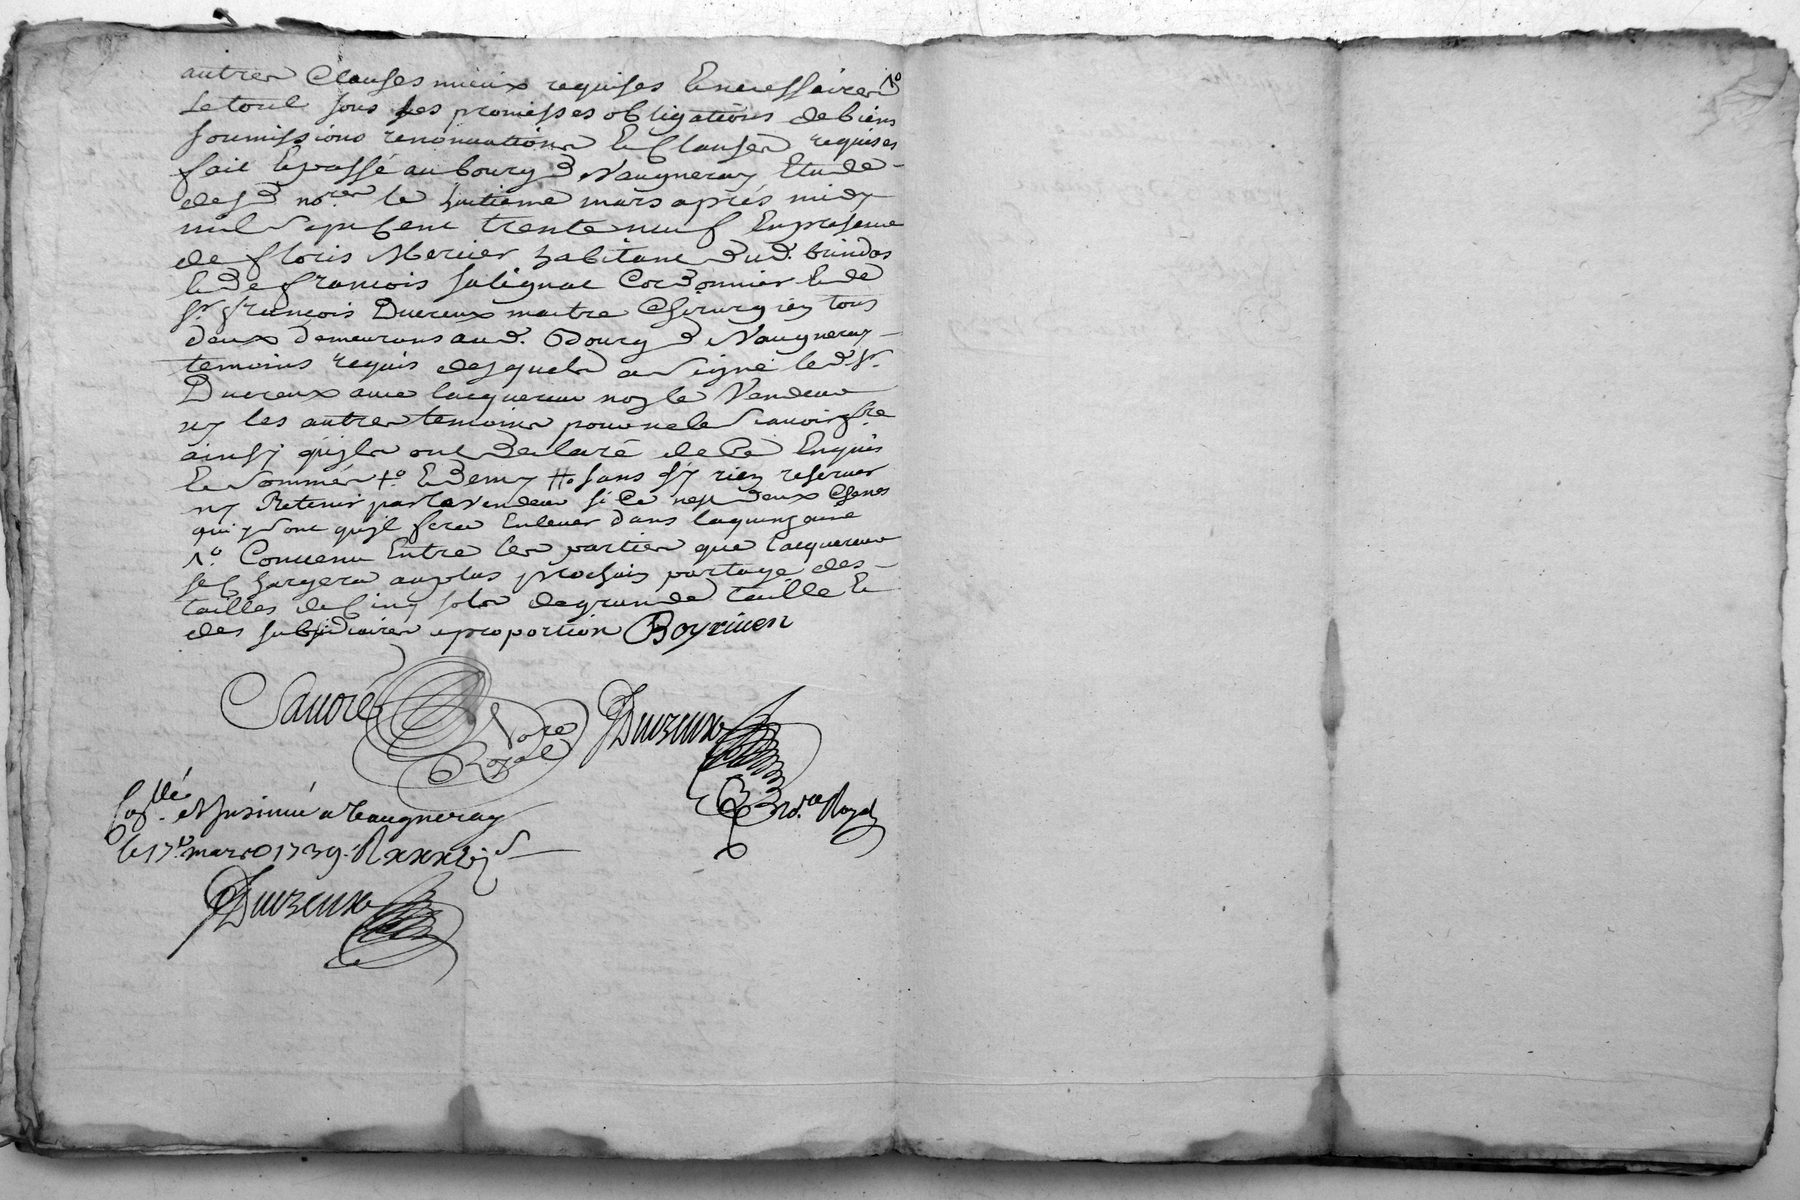 autres Clauses mieux requises & necessaires 1°
Le tout sous les promesses obligations de biens
soumissions renonciations & Clauses requises
fait & passé au bourg d Vaugneray Etude
desd nores le huitieme mars après midy
mil sept Cent trente neuf En presence
de floris Mercier habitant dud. brindas
& de françois Salignat Cordonnier & de
Sr. françois Duvreux maitre Chirurgien tous
deux demeurans aud. Bourg d Vaugneray
temoins requis desquels a signé led. Sr.
Duvreux avec lacquereur non le Vendeur
ny les autres temoins pour ne le scavoir fre
ainsy quils ont declaré de Ce Enquis
& sommés +° & demy #° sans s'y rien reserver
ny Retenir par le vendeur si Ce nest deux Chenes
qui y sont quil fera Enlever dans la quinzaine
1°. Convenu Entre les parties que lacquereur
se Chargera au plus prochain partage des
tailles de Cinq sols de grande taille &
des subsidiaires a proportion Boyriven
Sauoré Nore Royal
Duvreux
nore. Royal
Collé. & Insinué a Vaugneray
le 17°. mars 1739. R
Duvreux